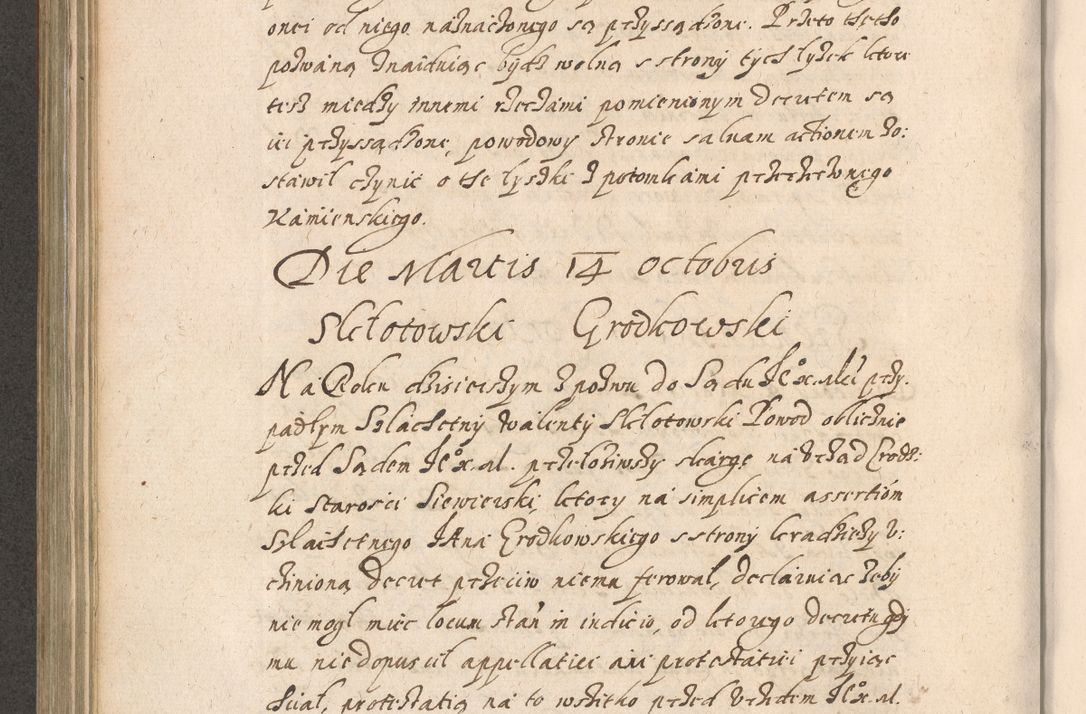 onei od niego naznaczonego są przyssądzone. Przeto theto
pozwaną znaiduiąc bydź wolną s strony tych lyżek ktore
tesz miedzy innemi rzeczami pomienionym decretem są
iei przyssądzone, powodowy stronie saluam actionem zo:
stawil czynic o the lyszki z potomkami przerzeczonego
Kamienskiego.
Die Martis 14 octobris
Skłotowski Grodkowski
Na Roku dzisieiszym z pozwu do Sądu JEo X. Mći przy:
padłym Szlachetny Walenty Skłotowski Powod oblicznie
przed Sądem JEo X. M. przełożiwszy skargę na Vrząd Grodz:
ki Starosci Siewierski, ktory na simplicem assertióm
Szlachetnego JAna Grodkowskiego s strony kradzieży v:
czinioną decret przeciw niemu ferowal, declaruiąc żeby
nie mogł mieć locum stań in indicio, od ktorego decretu gdj
mu nie dopuscil appellatiei ani protestatiei przyiąc
chciał, protestatią na to wszitko przed Vrzędem JEo X. M.